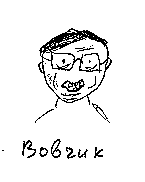 Вовчик